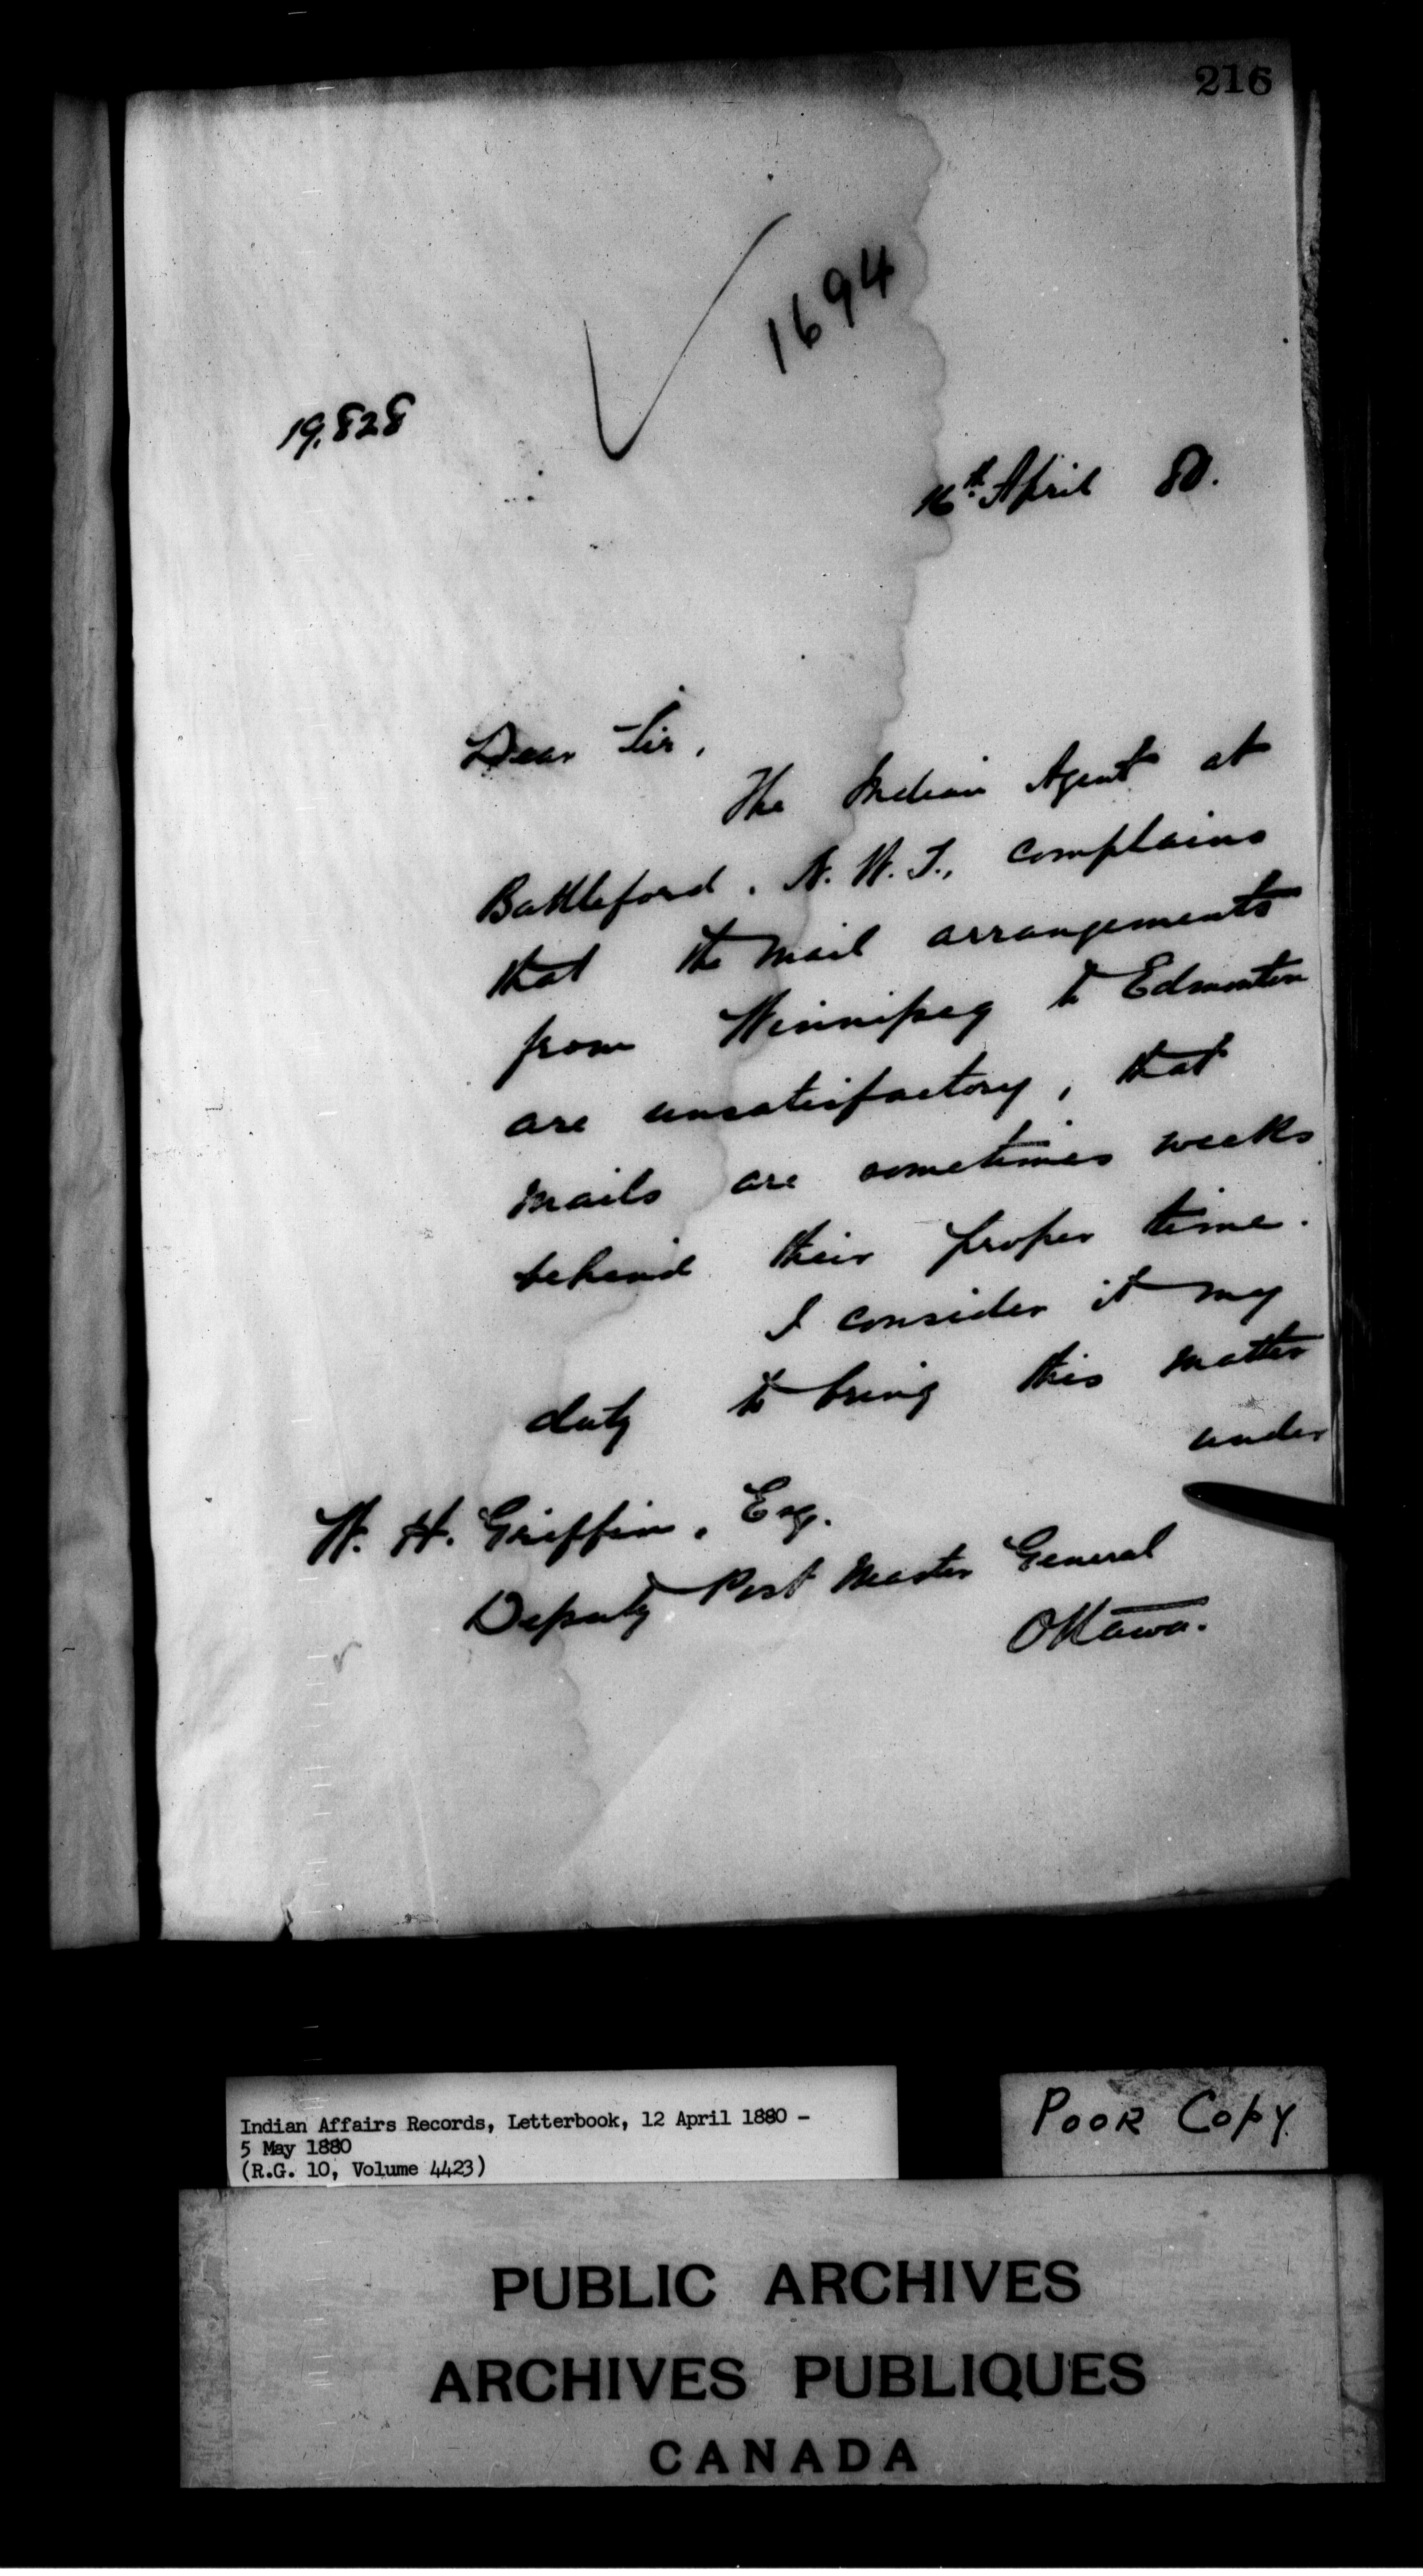 216
1694
19,828
16th April 80.
Dear Sir,
The Indian Agent at
Battleford, N. W. T., complains
that the mail arrangements
from Winnipeg to Edmonton
are unsatisfactory, that
mails are sometimes weeks
behind their proper time.
I consider it my
duty to bring this matter
under
W. H. Griffin, Esq.
Deputy Post Master General
Ottawa.
Indian Affairs Records, Letterbook, 12 April 1880 -
5 May 1880
(R.G. 10, Volume 4423)
POOR COPY
PUBLIC ARCHIVES
ARCHIVES PUBLIQUES
CANADA